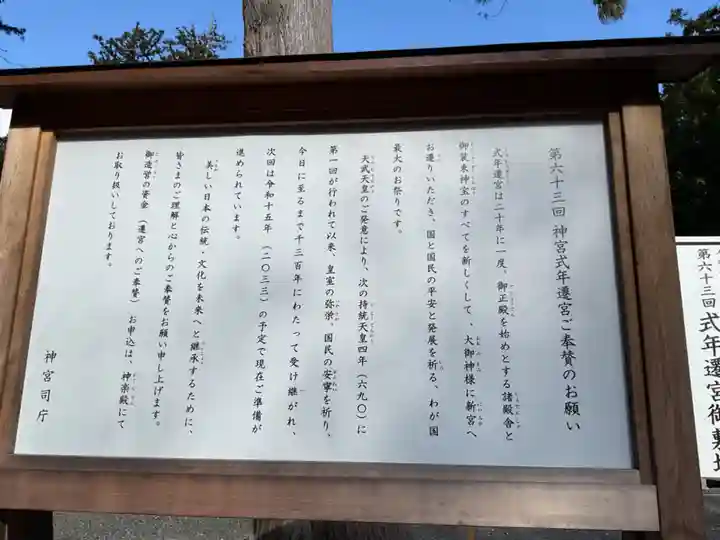 第六十三回 神宮式年遷宮ご奉賛のお願い
式年遷宮は二十年に一度、御正殿を始めとする諸殿舎と
御装束神宝のすべてを新しくして、大御神様に新宮へ
お遷りいただき、国と国民の平安と発展を祈る、わが国
最大のお祭りです。
天武天皇のご発意により、次の持統天皇四年（六九〇）に
第一回が行われて以来、皇室の弥栄、国民の安寧を祈り、
今日に至るまで千三百年にわたって受け継がれ、
次回は令和十五年（二〇三三）の予定で現在ご準備が
進められています。
美しい日本の伝統・文化を未来へと継承するために、
皆さまのご理解と心からのご奉賛をお願い申し上げます。
御造営の資金（遷宮へのご奉賛）お申込は、神楽殿にて
お取り扱いしております。
神宮司庁
第六十三回 式年遷宮御敷地